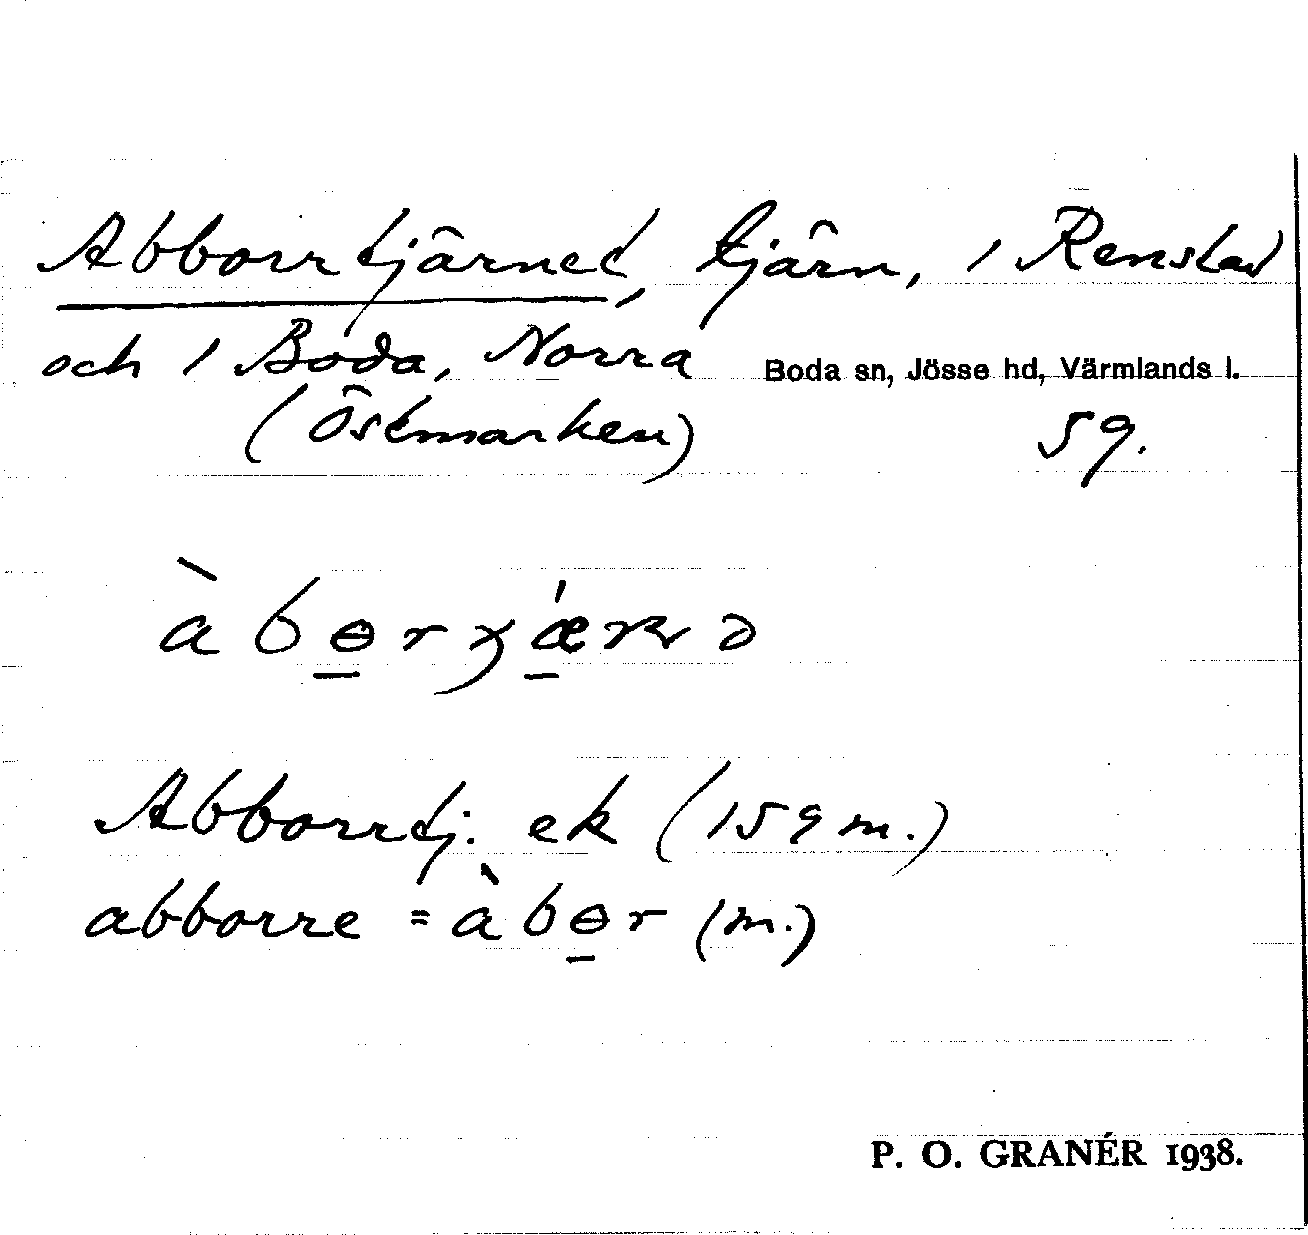 Abborrtjärnet, tjärn, i Renstad
och i Boda, Norra Boda sn, Jösse hd, Värmlands l.
(Östmarken) 59.
Abborrtj. ek (159 m.)
abborre = àbɵr (m.)
P. O. GRANÉR 1938.